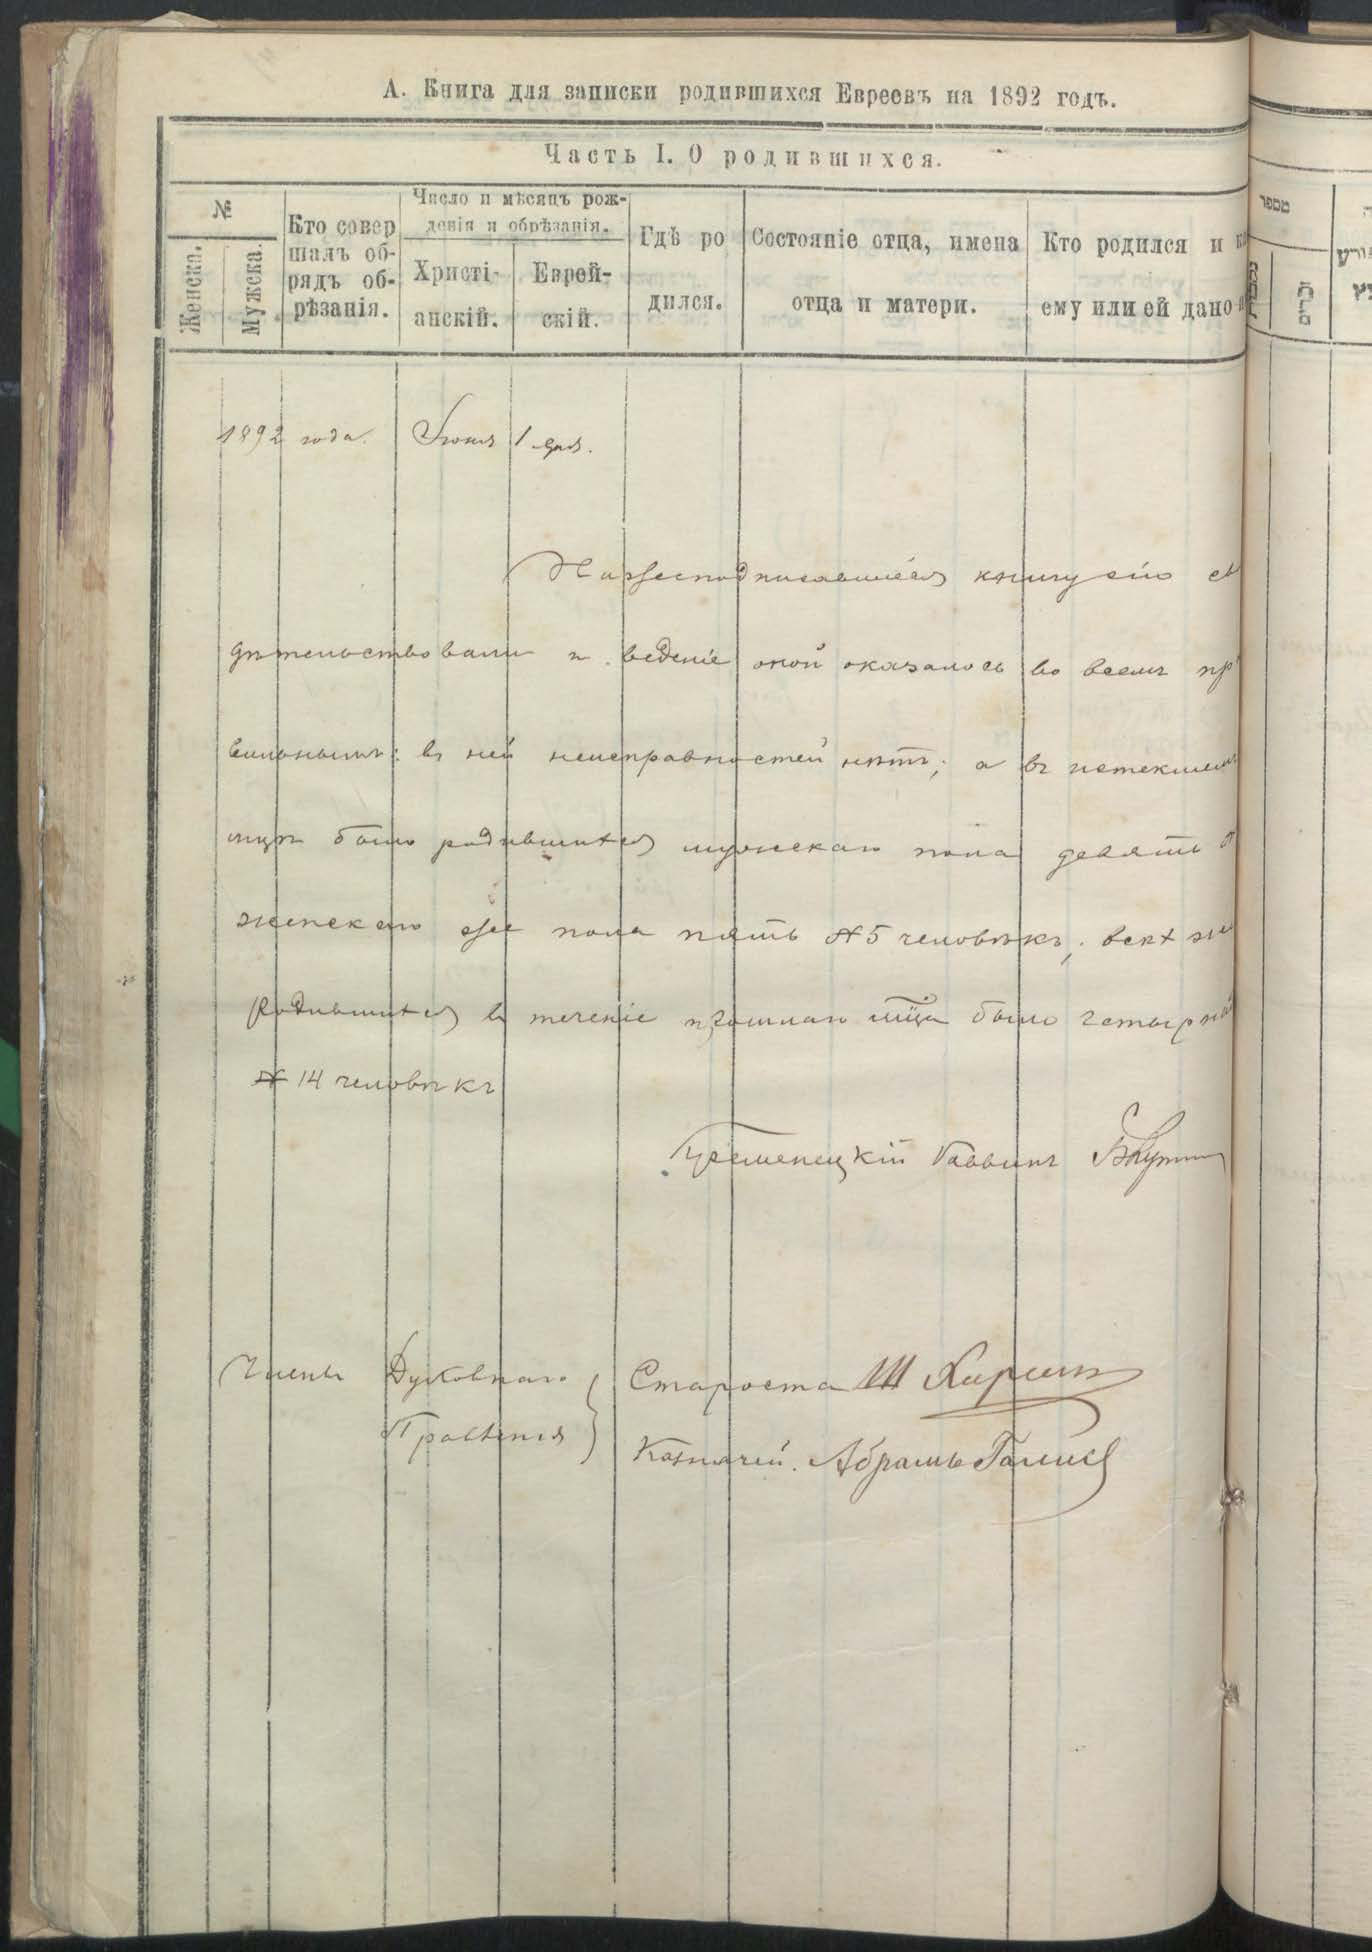 А. Книга для записки родившихся Евреевъ на 1892 годъ.
Часть I. О родившихся.
№
Женска.
Мужска.
Кто совер
шалъ об-
рядъ об-
рѣзанія.
Число и мѣсяцъ рож-
денія и обрѣзанія.
Христі-
анскій.
Еврей-
скій.
Гдѣ ро
дился.
Состояніе отца, имена
отца и матери.
Кто родился и
ему или ей дано
מספר
נקבות
זכרים
1892 года. Іюня 1 дня.
Нижеподписавшіеся книгу сію св
дѣтельствовали и веденіе оной оказалось во всемъ пр
вильнымъ: въ ней неисправностей нѣтъ; а въ истекшемъ
мцѣ было родившихся мужскаго пола девять
женскаго же пола пять № 5 человѣкъ, всѣхъ же
родившихся въ теченіе прошлаго мца было четырнад
№ 14 человѣкъ
Кременецкій Раввинъ
Члены Духовнаго
Правленія
Староста Ш
Казначей. Абрамъ